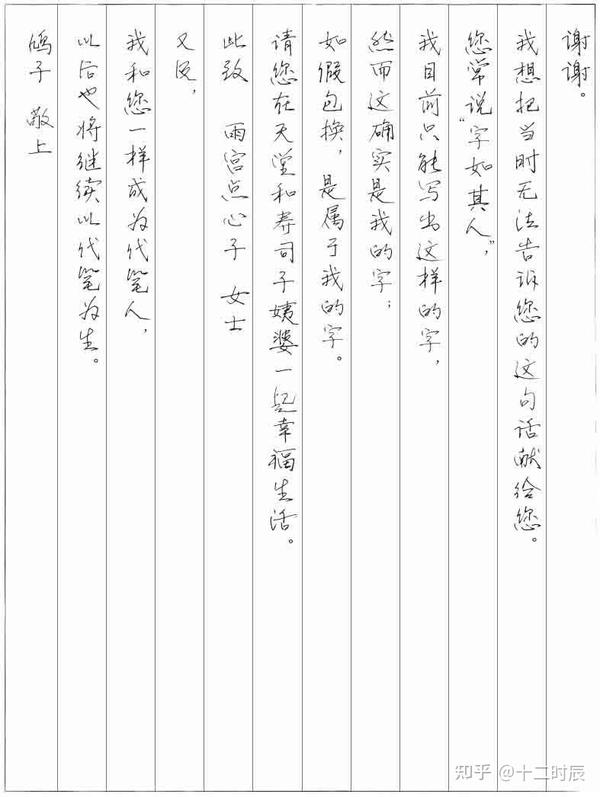 谢谢。
我想把当时无法告诉您的这句话献给您。
您常说“字如其人”，
我目前只能写出这样的字，
然而这确实是我的字；
如假包换，是属于我的字。
请您在天堂和寿司子姨婆一起幸福生活。
此致 雨宫点心子 女士
又及，
我和您一样成为代笔人，
以后也将继续以代笔为生。
鸽子 敬上
知乎 @十二时辰